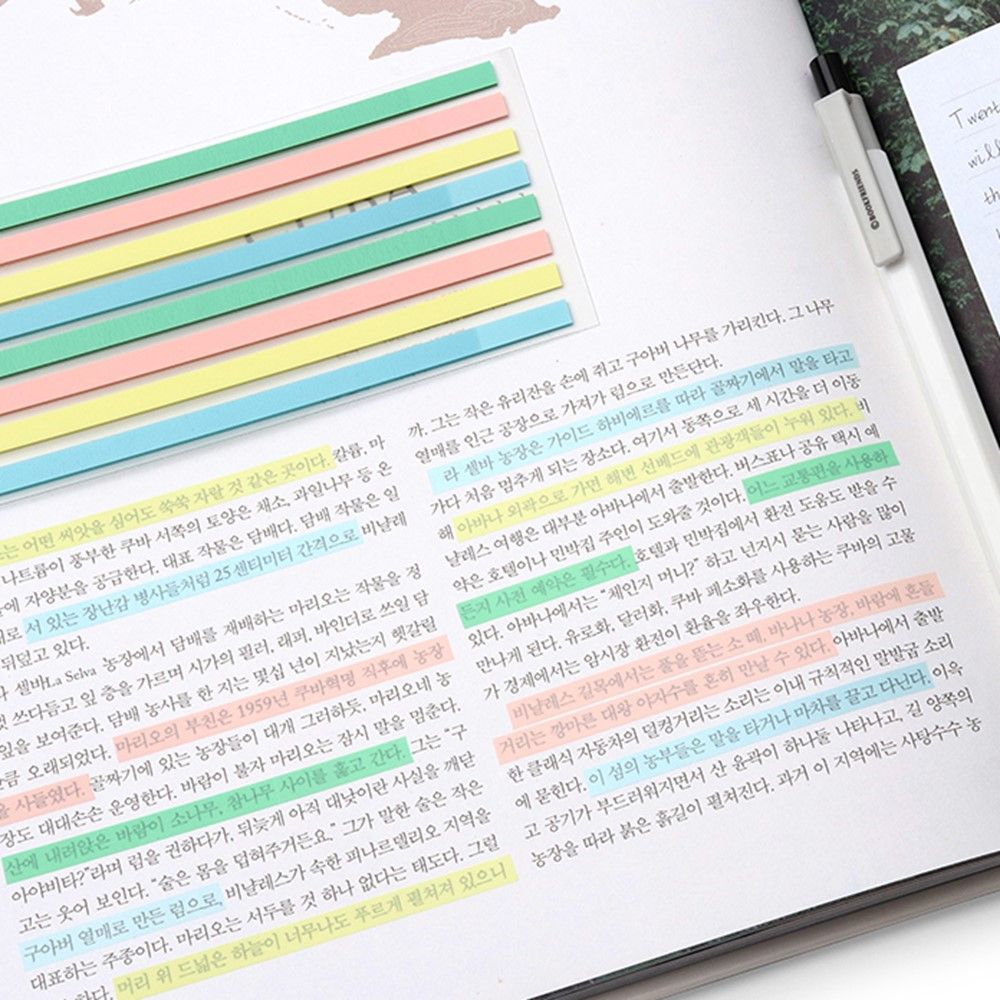 는 어떤 씨앗을 심어도 쑥쑥 자랄 것 같은 곳이다. 칼륨, 마
나트륨이 풍부한 쿠바 서쪽의 토양은 채소, 과일나무 등 온
에 자양분을 공급한다. 대표 작물은 담배다. 담배 작물은 일
로 서 있는 장난감 병사들처럼 25센티미터 간격으로 비냘레
뒤덮고 있다.
셀바La Selva 농장에서 담배를 재배하는 마리오는 작물을 정
쓰다듬고 잎 층을 가르며 시가의 필러, 래퍼, 바인더로 쓰일 담
잎을 보여준다. 담배 농사를 한 지는 몇십 년이 지났는지 헷갈릴
큼 오래되었다. 마리오의 부친은 1959년 쿠바혁명 직후에 농장
을 사들였다. 골짜기에 있는 농장들이 대개 그러하듯, 마리오네 농
장도 대대손손 운영한다. 바람이 불자 마리오는 잠시 말을 멈춘다.
산에 내려앉은 바람이 소나무, 참나무 사이를 훑고 간다. 그는 “구
아야비타?”라며 럼을 권하다가, 뒤늦게 아직 대낮이란 사실을 깨닫
고는 웃어 보인다. “술은 몸을 덥혀주거든요.” 그가 말한 술은 작은
구아버 열매로 만든 럼으로, 비냘레스가 속한 피나르델리오 지역을
대표하는 주종이다. 마리오는 서두를 것 하나 없다는 태도다. 그럴
하다. 머리 위 드넓은 하늘이 너무나도 푸르게 펼쳐져 있으니
까. 그는 작은 유리잔을 손에 쥐고 구아버 나무를 가리킨다. 그 나무
열매를 인근 공장으로 가져가 럼으로 만든단다.
라 셀바 농장은 가이드 하비에르를 따라 골짜기에서 말을 타고
가다 처음 멈추게 되는 장소다. 여기서 동쪽으로 세 시간을 더 이동
해 아바나 외곽으로 가면 해변 선베드에 관광객들이 누워 있다. 비
냘레스 여행은 대부분 아바나에서 출발한다. 버스표나 공유 택시 예
약은 호텔이나 민박집 주인이 도와줄 것이다. 어느 교통편을 사용하
든지 사전 예약은 필수다. 호텔과 민박집에서 환전 도움도 받을 수
있다. 아바나에서는 “체인지 머니?” 하고 넌지시 묻는 사람을 많이
만나게 된다. 유로화, 달러화, 쿠바 페소화를 사용하는 쿠바의 고물
가 경제에서는 암시장 환전이 환율을 좌우한다.
비냘레스 길목에서는 풀을 뜯는 소 떼, 바나나 농장, 바람에 흔들
거리는 깡마른 대왕 야자수를 흔히 만날 수 있다. 아바나에서 출발
한 클래식 자동차의 덜컹거리는 소리는 이내 규칙적인 말발굽 소리
에 묻힌다. 이 섬의 농부들은 말을 타거나 마차를 끌고 다닌다. 이윽
고 공기가 부드러워지면서 산 윤곽이 하나둘 나타나고, 길 양쪽의
농장을 따라 붉은 흙길이 펼쳐진다. 과거 이 지역에는 사탕수수 농
BOOKFRIENDS
Twent
will
th